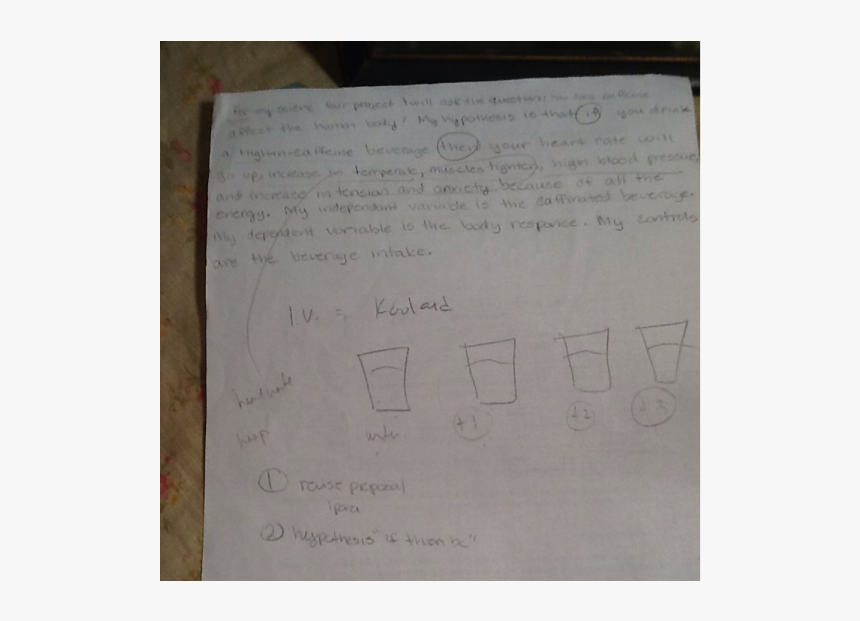 For my science fair project I will ask the question: how does caffeine
affect the human body? My hypothesis is that if you drink
a high-in-caffeine beverage then your heart rate will
go up, increase in temperate, muscles tighten, high blood pressure,
and increase in tension and anxiety because of all the
energy. My independant variable is the caffinated beverage.
My dependent variable is the body responce. My controls
are the beverage intake.
I.V. = Koolaid
heart rate
+1 +2 +3
① revise proposal
② hypothesis "if then bc"